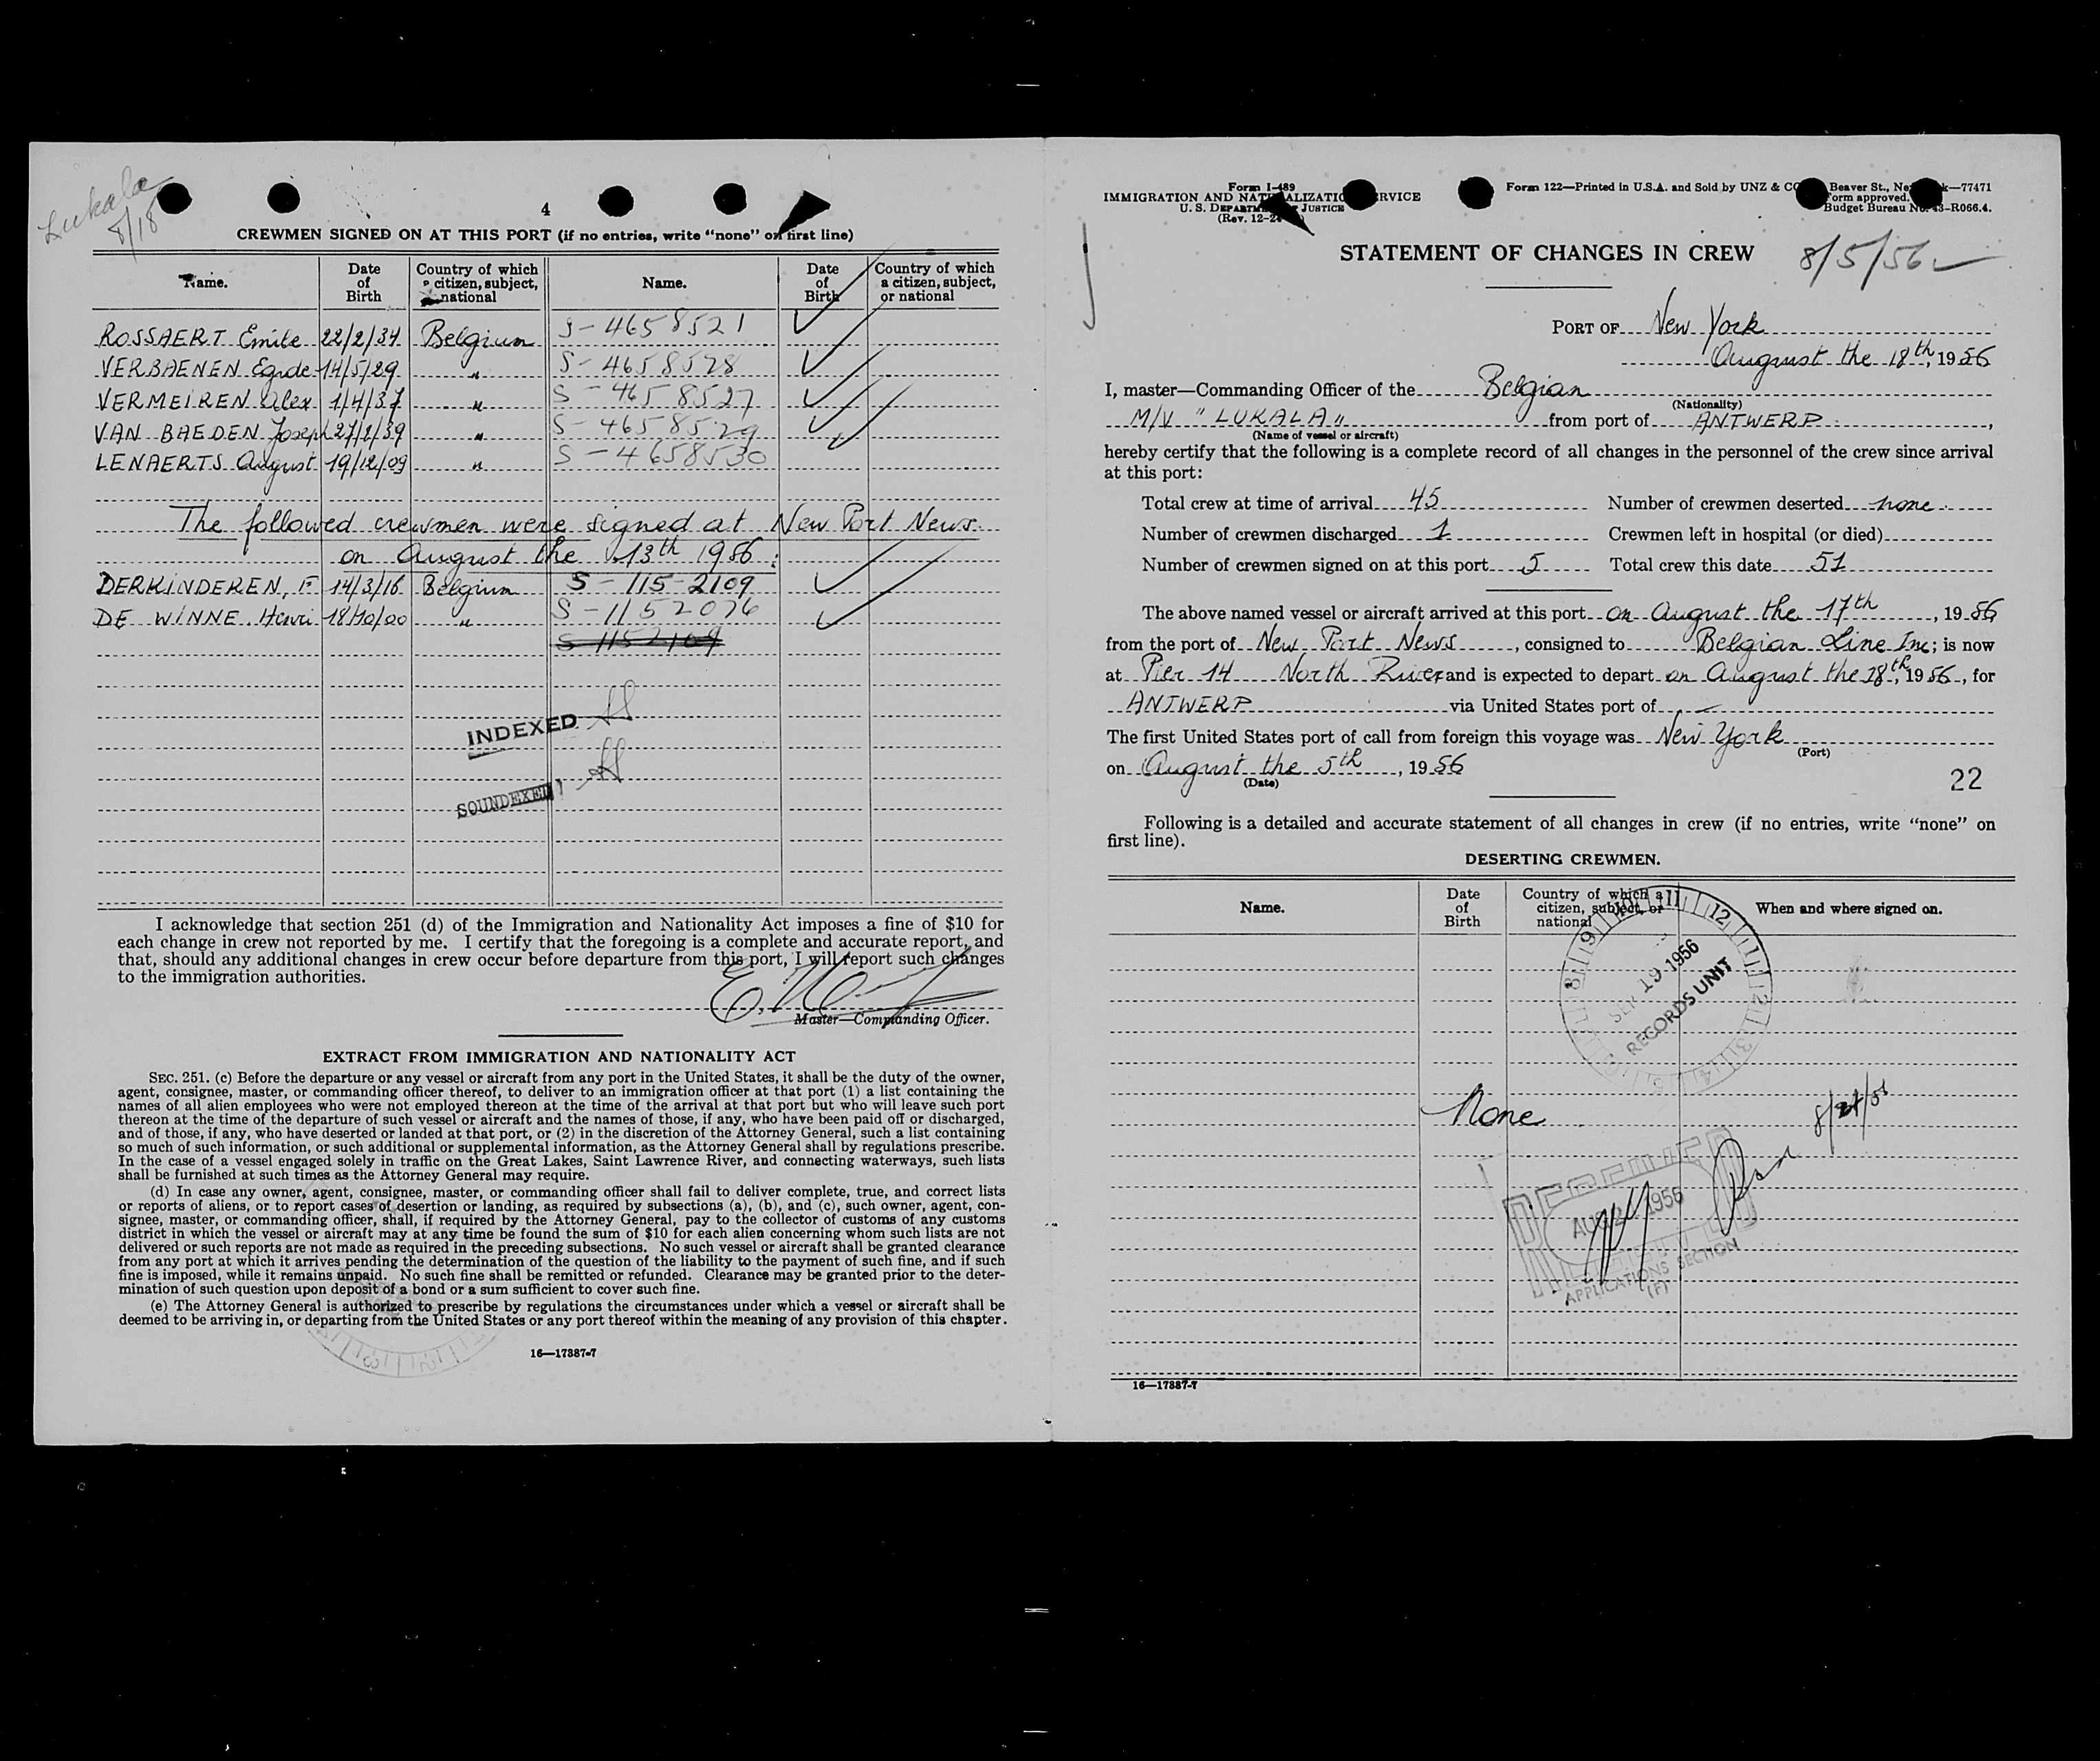 Lukala
8/18
4
CREWMEN SIGNED ON AT THIS PORT (if no entries, write “none” on first line)
Name. Date of Birth Country of which citizen, subject, national Name. Date of Birth Country of which a citizen, subject, or national
ROSSAERT Emile 22/2/34 Belgium S-4658521
VERBAENEN Egide 14/5/29 " S-4658528
VERMEIREN Alex 1/4/37 " S-4658527
VAN BAEDEN Joseph 27/2/39 " S-4658529
LENAERTS August 19/12/09 " S-4658530
The followed crewmen were signed at New Port News
on August the 13th 1956:
DERKINDEREN, F. 14/3/16 Belgium S-115-2109
DE WINNE Henri 18/10/00 " S-1152076
S-1152109
INDEXED
SOUNDEXED
I acknowledge that section 251 (d) of the Immigration and Nationality Act imposes a fine of $10 for
each change in crew not reported by me. I certify that the foregoing is a complete and accurate report, and
that, should any additional changes in crew occur before departure from this port, I will report such changes
to the immigration authorities.
Master—Commanding Officer.
EXTRACT FROM IMMIGRATION AND NATIONALITY ACT
SEC. 251. (c) Before the departure or any vessel or aircraft from any port in the United States, it shall be the duty of the owner,
agent, consignee, master, or commanding officer thereof, to deliver to an immigration officer at that port (1) a list containing the
names of all alien employees who were not employed thereon at the time of the arrival at that port but who will leave such port
thereon at the time of the departure of such vessel or aircraft and the names of those, if any, who have been paid off or discharged,
and of those, if any, who have deserted or landed at that port, or (2) in the discretion of the Attorney General, such a list containing
so much of such information, or such additional or supplemental information, as the Attorney General shall by regulations prescribe.
In the case of a vessel engaged solely in traffic on the Great Lakes, Saint Lawrence River, and connecting waterways, such lists
shall be furnished at such times as the Attorney General may require.
(d) In case any owner, agent, consignee, master, or commanding officer shall fail to deliver complete, true, and correct lists
or reports of aliens, or to report cases of desertion or landing, as required by subsections (a), (b), and (c), such owner, agent, con-
signee, master, or commanding officer, shall, if required by the Attorney General, pay to the collector of customs of any customs
district in which the vessel or aircraft may at any time be found the sum of $10 for each alien concerning whom such lists are not
delivered or such reports are not made as required in the preceding subsections. No such vessel or aircraft shall be granted clearance
from any port at which it arrives pending the determination of the question of the liability to the payment of such fine, and if such
fine is imposed, while it remains unpaid. No such fine shall be remitted or refunded. Clearance may be granted prior to the deter-
mination of such question upon deposit of a bond or a sum sufficient to cover such fine.
(e) The Attorney General is authorized to prescribe by regulations the circumstances under which a vessel or aircraft shall be
deemed to be arriving in, or departing from the United States or any port thereof within the meaning of any provision of this chapter.
16—17887-7
Form I-489
IMMIGRATION AND NATURALIZATION SERVICE
U. S. DEPARTMENT OF JUSTICE
(Rev. 12-2
Form 122—Printed in U.S.A. and Sold by UNZ & CO Beaver St., New York—77471
Form approved.
Budget Bureau No. 43-R066.4.
STATEMENT OF CHANGES IN CREW
8/5/56
PORT OF New York
August the 18th, 1956
I, master—Commanding Officer of the Belgian
(Nationality)
M/V "LUKALA" from port of ANTWERP,
(Name of vessel or aircraft)
hereby certify that the following is a complete record of all changes in the personnel of the crew since arrival
at this port:
Total crew at time of arrival 45 Number of crewmen deserted none
Number of crewmen discharged 1 Crewmen left in hospital (or died)
Number of crewmen signed on at this port 5 Total crew this date 51
The above named vessel or aircraft arrived at this port on August the 17th, 1956
from the port of New Port News, consigned to Belgian Line Inc; is now
at Pier 14 North River and is expected to depart on August the 18th, 1956, for
ANTWERP via United States port of —
The first United States port of call from foreign this voyage was New York
(Port)
on August the 5th, 1956
(Date)
22
Following is a detailed and accurate statement of all changes in crew (if no entries, write “none” on
first line).
DESERTING CREWMEN.
Name. Date of Birth Country of which a citizen, subject, or national When and where signed on.
SEP 19 1956
RECORDS UNIT
None
AUG 1956
APPLICATIONS SECTION
(F)
16—17887-7